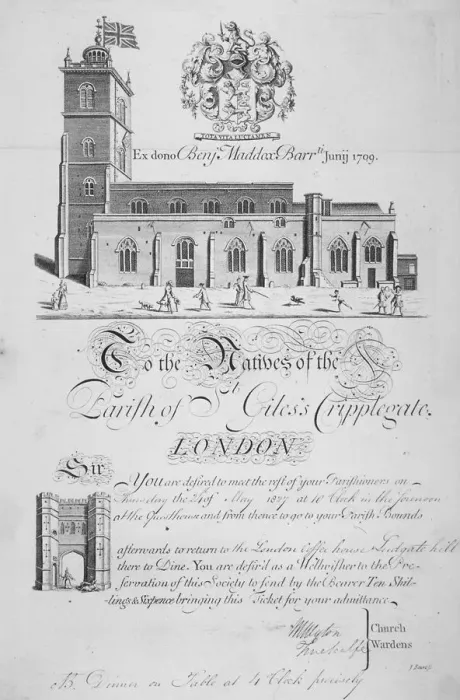 TOTA VITA
Ex dono Benj.n Maddox Barr.tt Junij 1709.
To the Natives of the
Parish of St Giles's Cripplegate,
LONDON
Sir
YOU are desired to meet the rest of your Parishioners on
Thursday the 24 of May 1827 at 10 Clock in the forenoon
at the Questhouse and from thence to go to your Parish Bounds
afterwards to return to the London Coffe house Ludgate hill
there to Dine. You are desir'd as a Wellwisher to the Pre-
servation of this Society to send by the Bearer Ten Shil-
lings & Sixpence bringing this Ticket for your admittance
Church
Wardens
NB. Dinner on Table at 4 Clock precisely